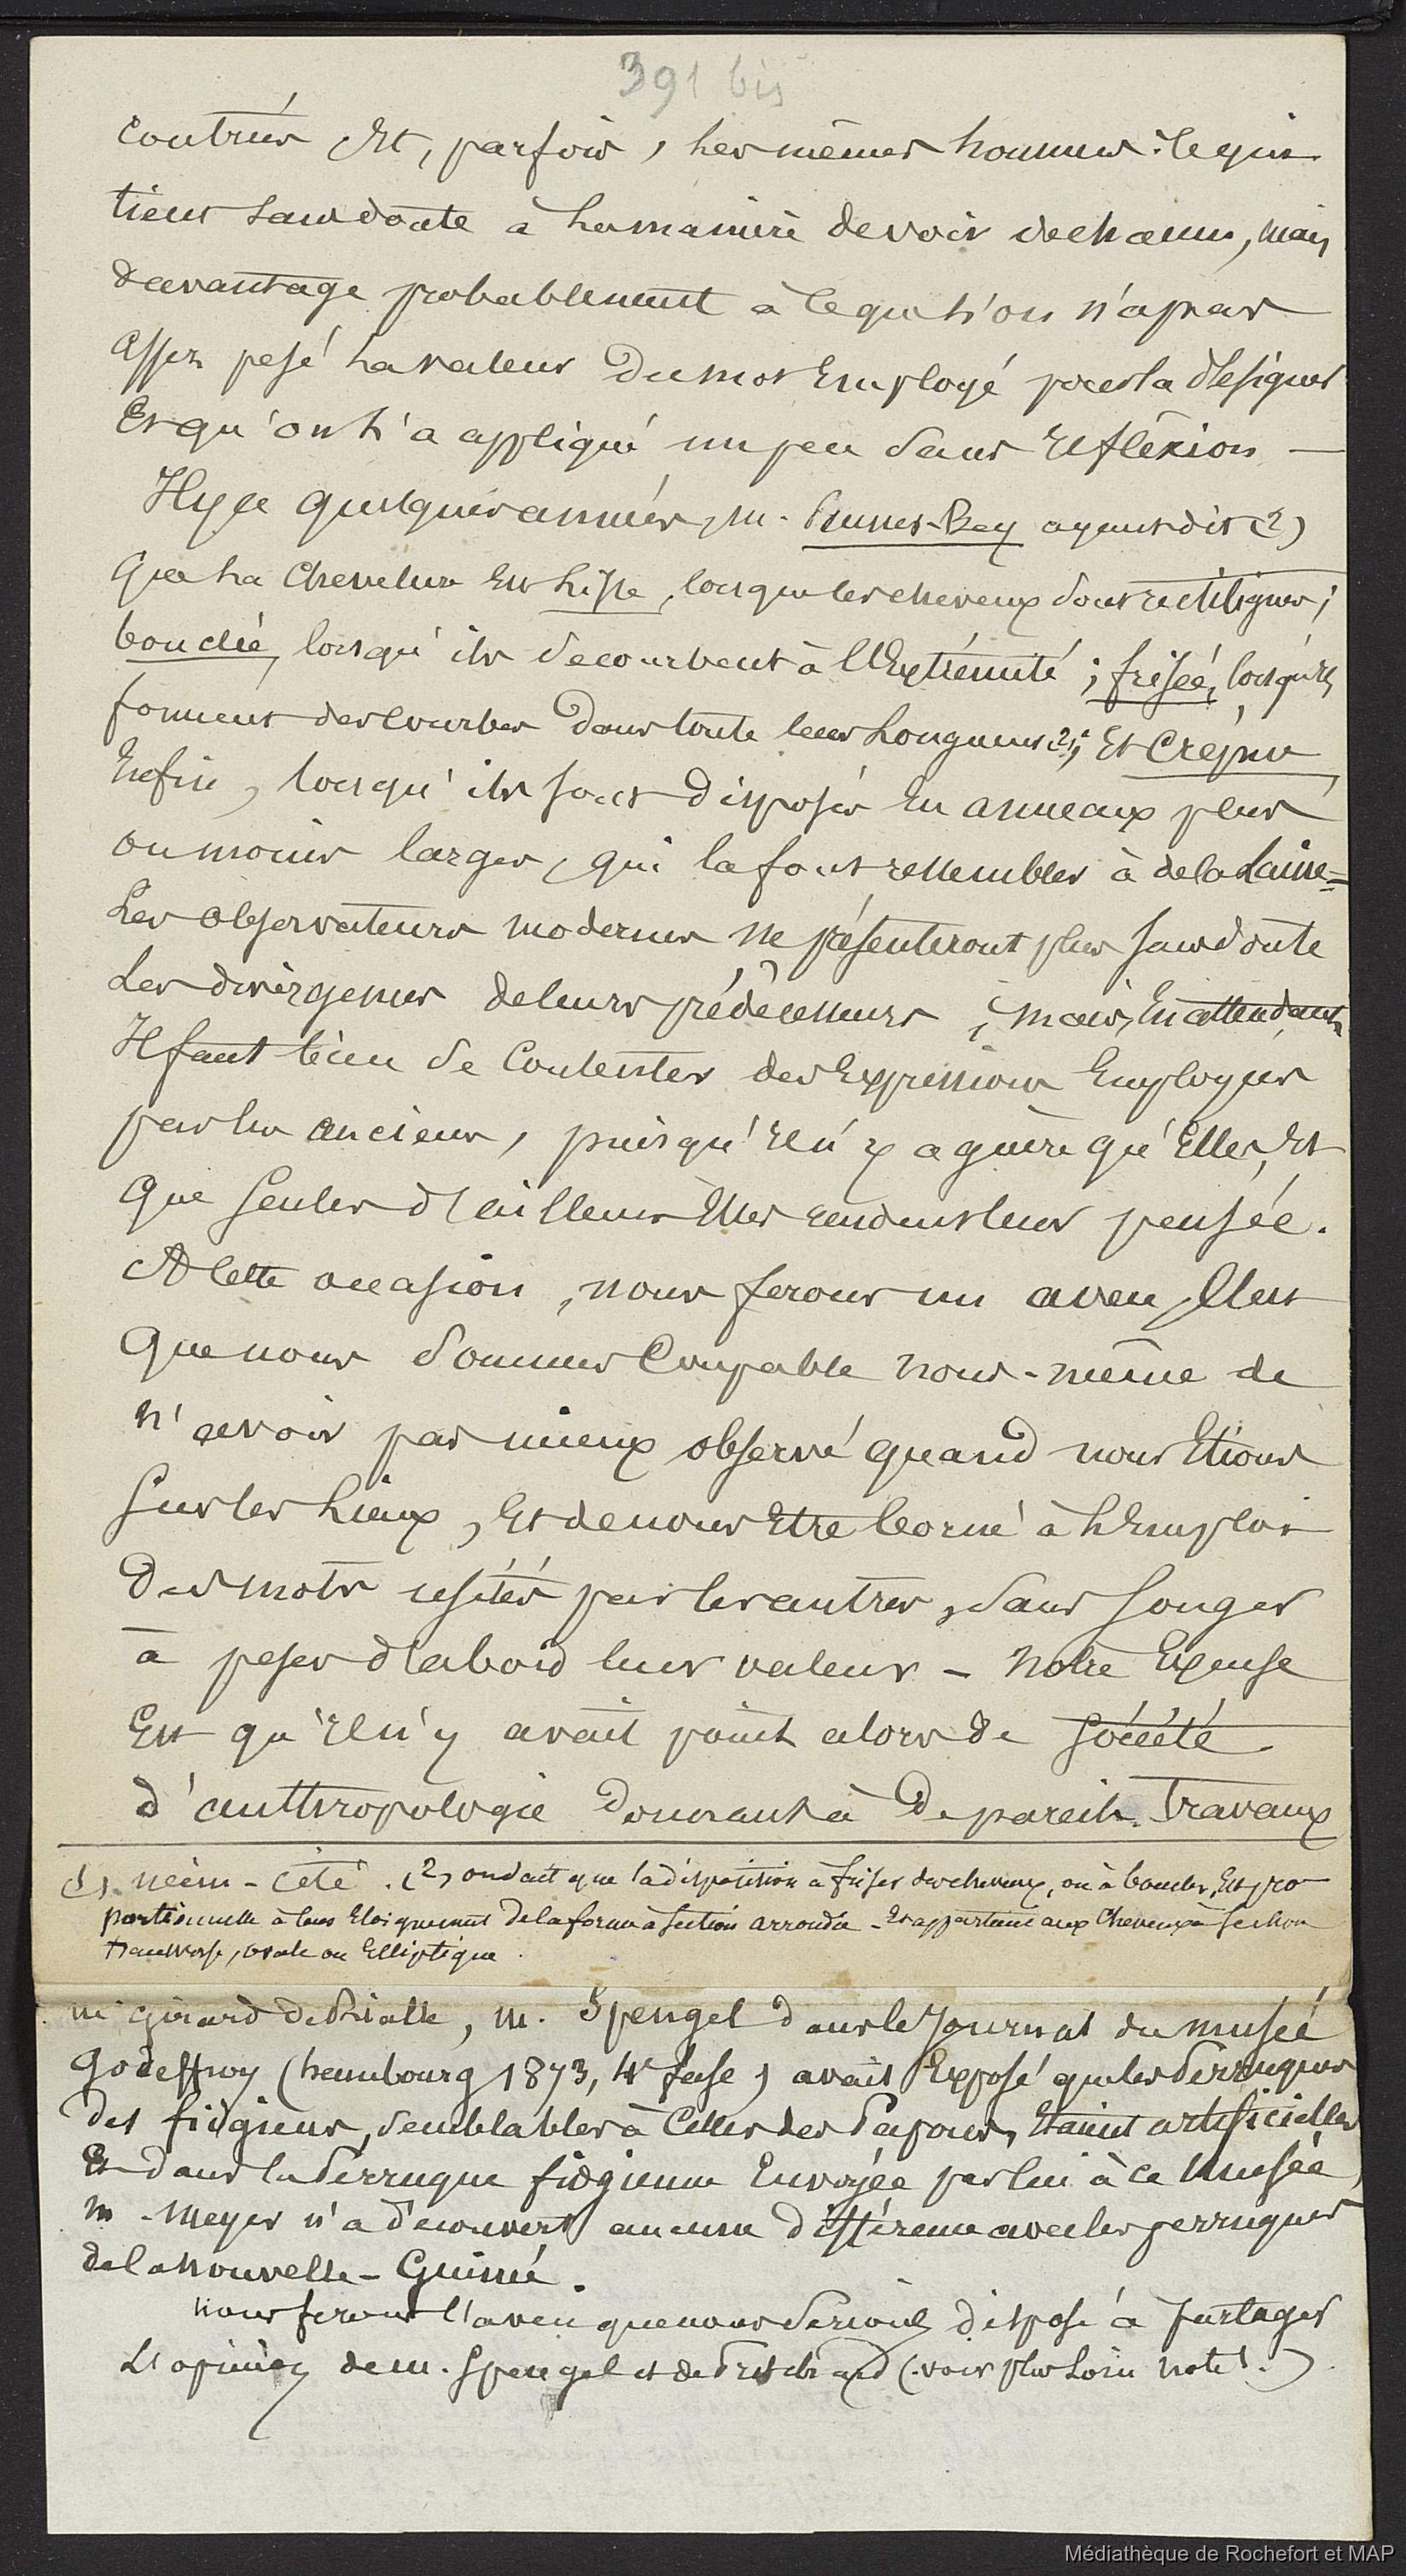 391 bis
contrées et, parfois, les mêmes hommes : ce qui
tient sans doute à la manière de voir de chacun, mais
davantage probablement à ce que l'on n'a pas
assez pesé la valeur du mot employé pour la désigner
et qu'on l'a appliqué un peu sans refléxion —
Il y a quelques années, M. Pruner-Bey ayant dit (2)
que la chevelure est lisse, lorsque les cheveux sont rectilignes ;
bouclée, lorsqu'ils se courbent à l'extrémité ; frisée, lorsqu'ils
forment des courbes dans toute leur longueur (2) ; et crépue
enfin, lorsqu'ils sont disposés en anneaux plus
ou moins larges, qui la font ressembler à de la laine =
Les observateurs modernes ne présenteront plus sans doute
les divergences de leurs prédécesseurs ; mais, en attendant,
Il faut bien se contenter des expressions employées
par les anciens, puisqu'il n'y a guère qu'elles, et
que seules d'ailleurs elles rendent leur pensée.
A cette occasion, nous ferons un aveu, c'est
que nous sommes coupable nous-même de
n'avoir pas mieux observé quand nous étions
sur les lieux, et de nous être borné à l'emploi
des mots usités par les autres, sans songer
à peser d'abord leur valeur – notre excuse
est qu'il n'y avait point alors de société
d'anthropologie donnant à de pareils travaux
(1). mém - cité. (2) on dit que la disposition à friser des cheveux, ou à boucler, est pro
portionnelle à leur eloignement de la forme à section arrondie - et appartient aux cheveux à section
transverse, ovale ou elliptique.
m girard de Rialle, m. Spengel dans le Journal du musée
Godeffroy (hambourg 1873, 4e fasc) avait exposé que les perruques
des fidgiens, semblables à celles des Papous, étaient artificielles
Et dans la perruque fidgienne envoyée par lui à ce musée,
m - Meyer n'a découvert aucune différence avec les perruques
de la nouvelle - Guinée.
nous ferons l'aveu que nous serions disposé à partager
L'opinion de m. Spengel et de Pritchard (voir plus loin note 1.)
Médiathèque de Rochefort et MAP